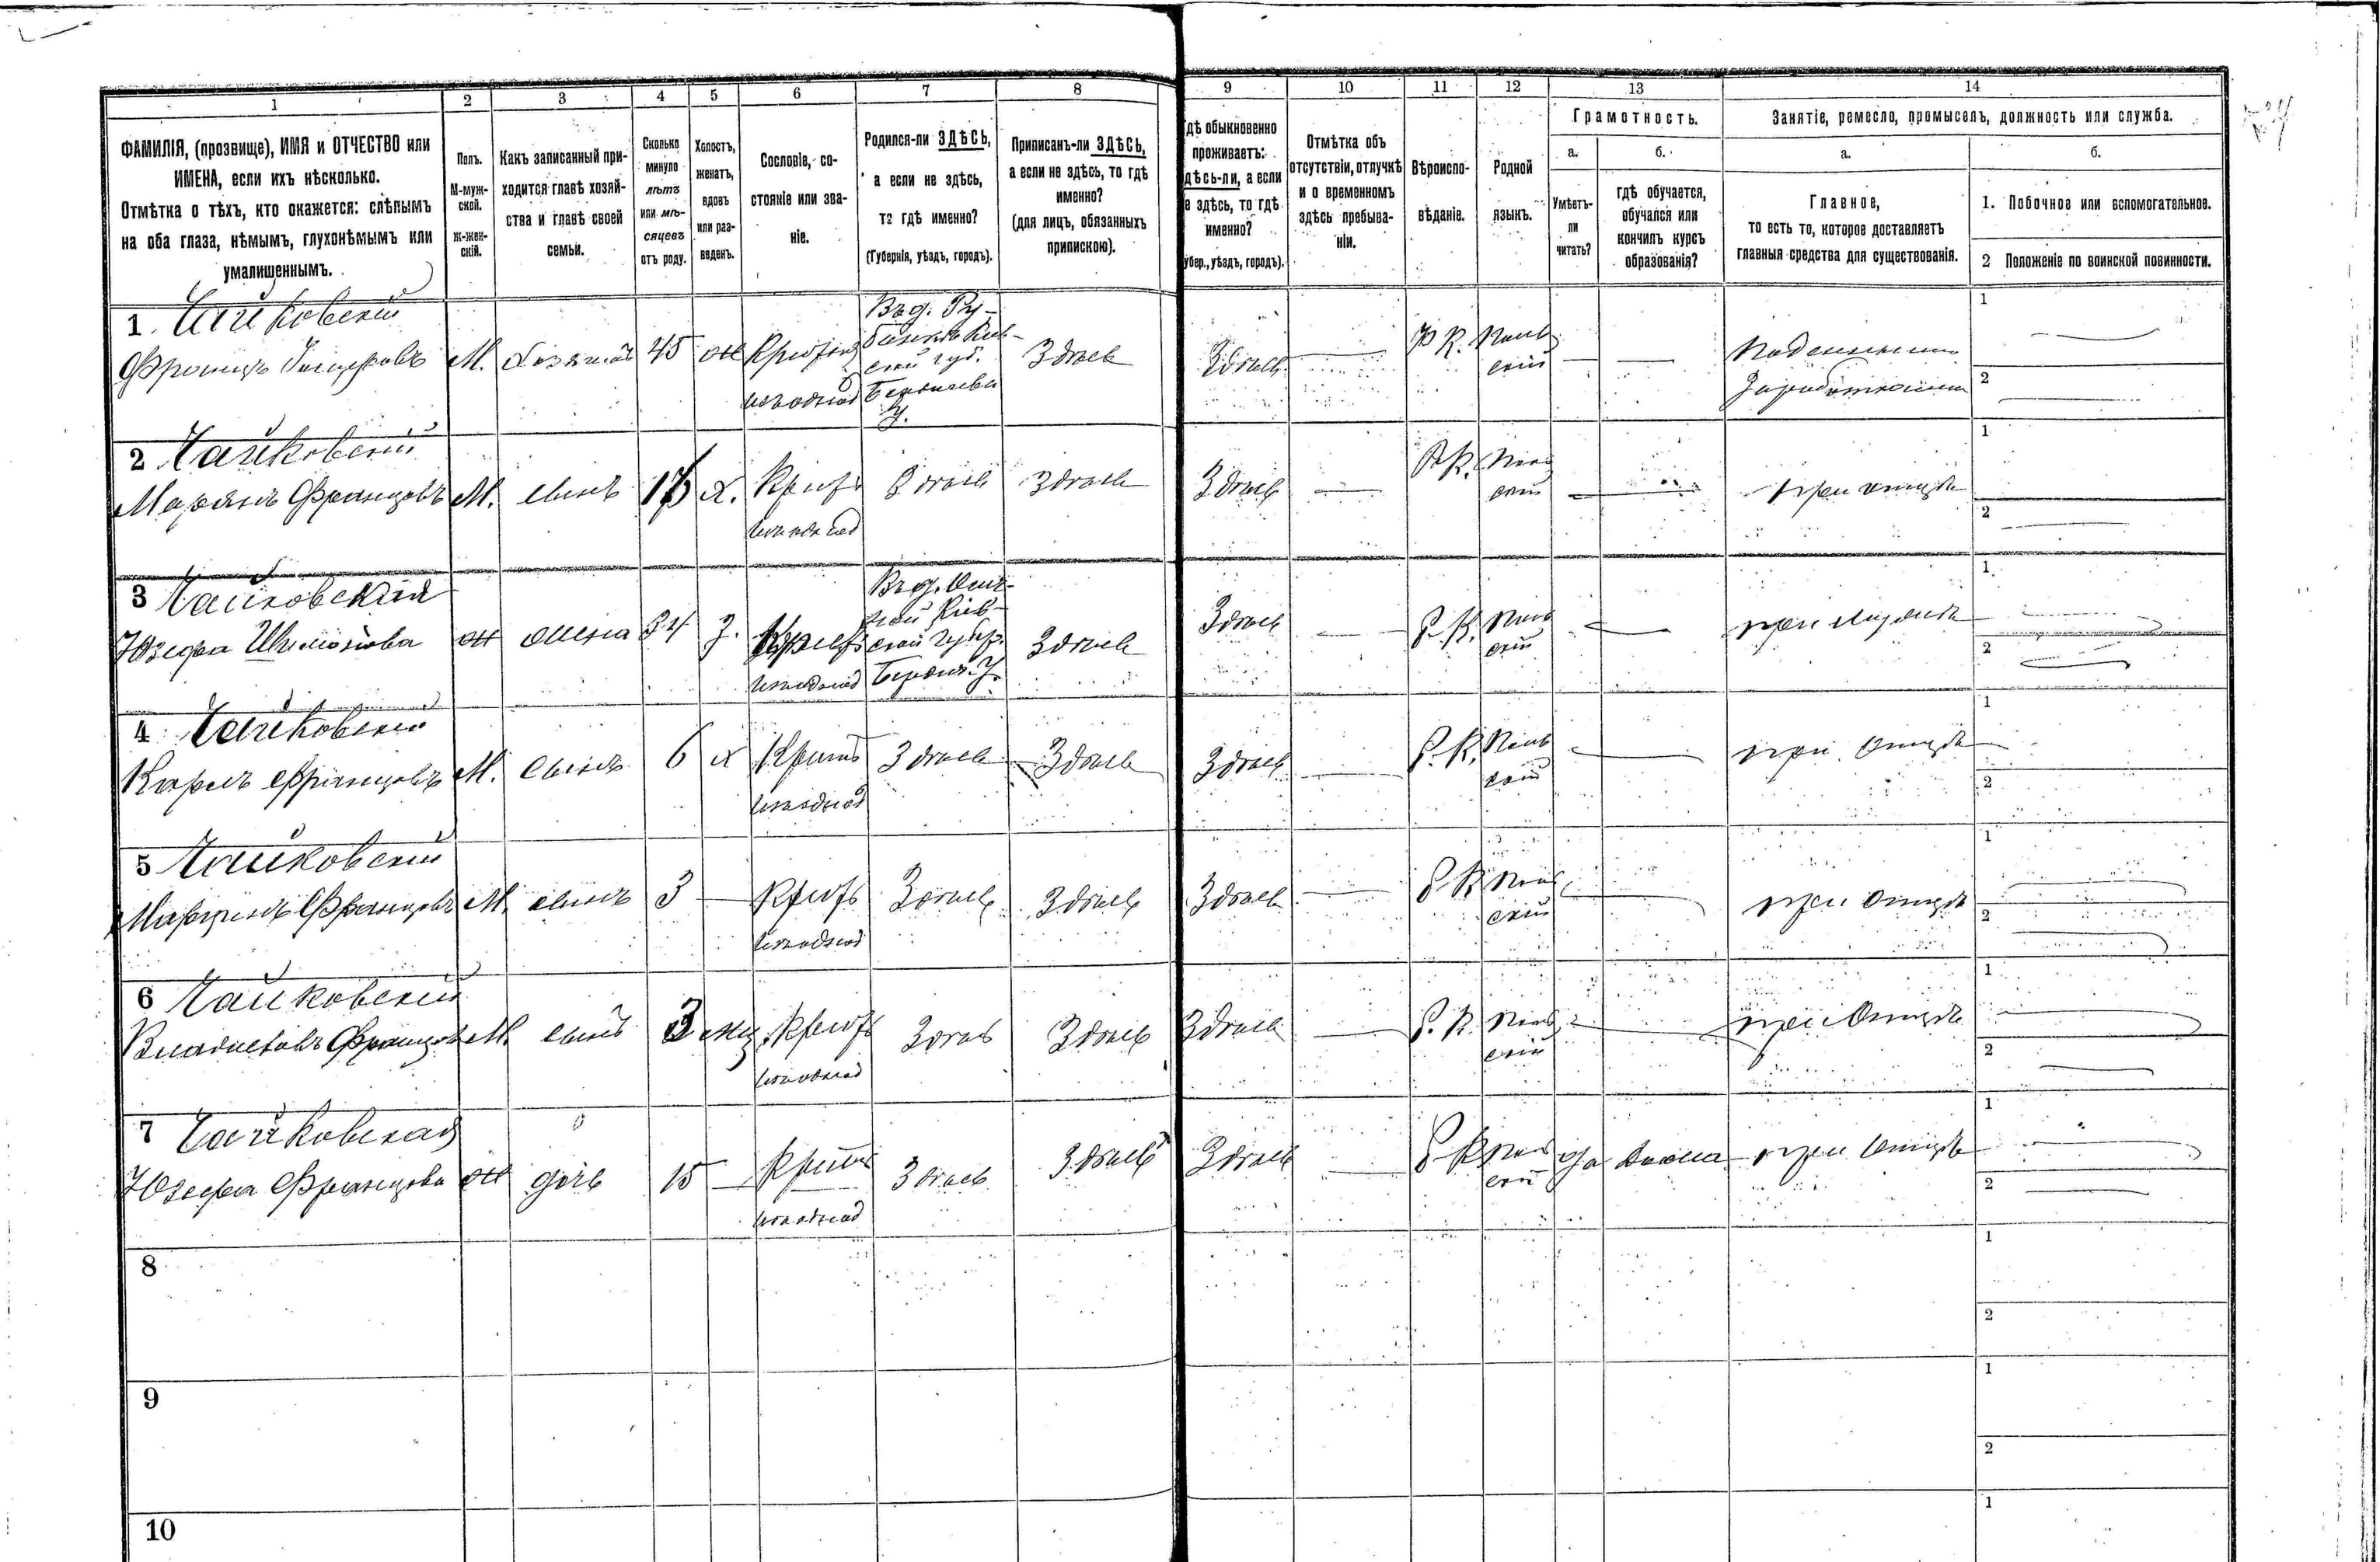 1 2 3 4 5 6 7 8 9 10 11 12 13 14
ФАМИЛІЯ, (прозвище), ИМЯ и ОТЧЕСТВО или
ИМЕНА, если ихъ нѣсколько.
Отмѣтка о тѣхъ, кто окажется: слѣпымъ
на оба глаза, нѣмымъ, глухонѣмымъ или
умалишеннымъ.
Полъ.
М-муж-
ской.
ж-жен-
скій.
Какъ записанный при-
ходится главѣ хозяй-
ства и главѣ своей
семьи.
Сколько
минуло
лѣтъ
или мѣ-
сяцевъ
отъ роду.
Холостъ,
женатъ,
вдовъ
или раз-
веденъ.
Сословіе, со-
стояніе или зва-
ніе.
Родился-ли ЗДѢСЬ,
а если не здѣсь,
то гдѣ именно?
(Губернія, уѣздъ, городъ).
Приписанъ-ли ЗДѢСЬ,
а если не здѣсь, то гдѣ
именно?
(для лицъ, обязанныхъ
припискою).
гдѣ обыкновенно
проживаетъ:
здѣсь-ли, а если
не здѣсь, то гдѣ
именно?
(Губер., уѣздъ, городъ).
Отмѣтка объ
отсутствіи, отлучкѣ
и о временномъ
здѣсь пребыва-
ніи.
Вѣроиспо-
вѣданіе.
Родной
языкъ.
Грамотность.
а.
Умѣетъ-
ли
читать?
б.
гдѣ обучается,
обучался или
кончилъ курсъ
образованія?
Занятіе, ремесло, промыселъ, должность или служба.
а.
Главное,
то есть то, которое доставляетъ
главныя средства для существованія.
б.
1. Побочное или вспомогательное.
2 Положеніе по воинской повинности.
1 Чайковскій
Францъ М. Хозяинъ 45 ж
Киев-
ской губ.
Здѣсь Здѣсь Р. К. Поль
скій
1
2
2 Чайковскій
Марянъ Францовъ М. сынъ х. Здѣсь Здѣсь Здѣсь Р. К. Поль
скій при отцѣ
1
2
3 Чайковская
Юзефа Шимонова ж жена 34 з.
Киев-
ской губер.
Бердич. у.
Здѣсь Здѣсь Р. К. Поль
скій при мужѣ
1
2
4 Чайковскій
Кароль Францовъ М. сынъ 6 х Здѣсь Здѣсь Здѣсь Р. К. Поль
скій при отцѣ
1
2
5 Чайковскій
Марцинъ Францовъ М. сынъ 3 Здѣсь Здѣсь Здѣсь Р. К. Поль
скій при отцѣ
1
2
6 Чайковскій
Владиславъ Францовъ М. сынъ 3 мц. Здѣсь Здѣсь Здѣсь Р. К. Поль
скій при отцѣ
1
2
7 Чайковская
Юзефа Францова ж дочь 15 Здѣсь Здѣсь Здѣсь Р. К. Поль
скій да дома при отцѣ
1
2
8
1
2
9
1
2
10
1